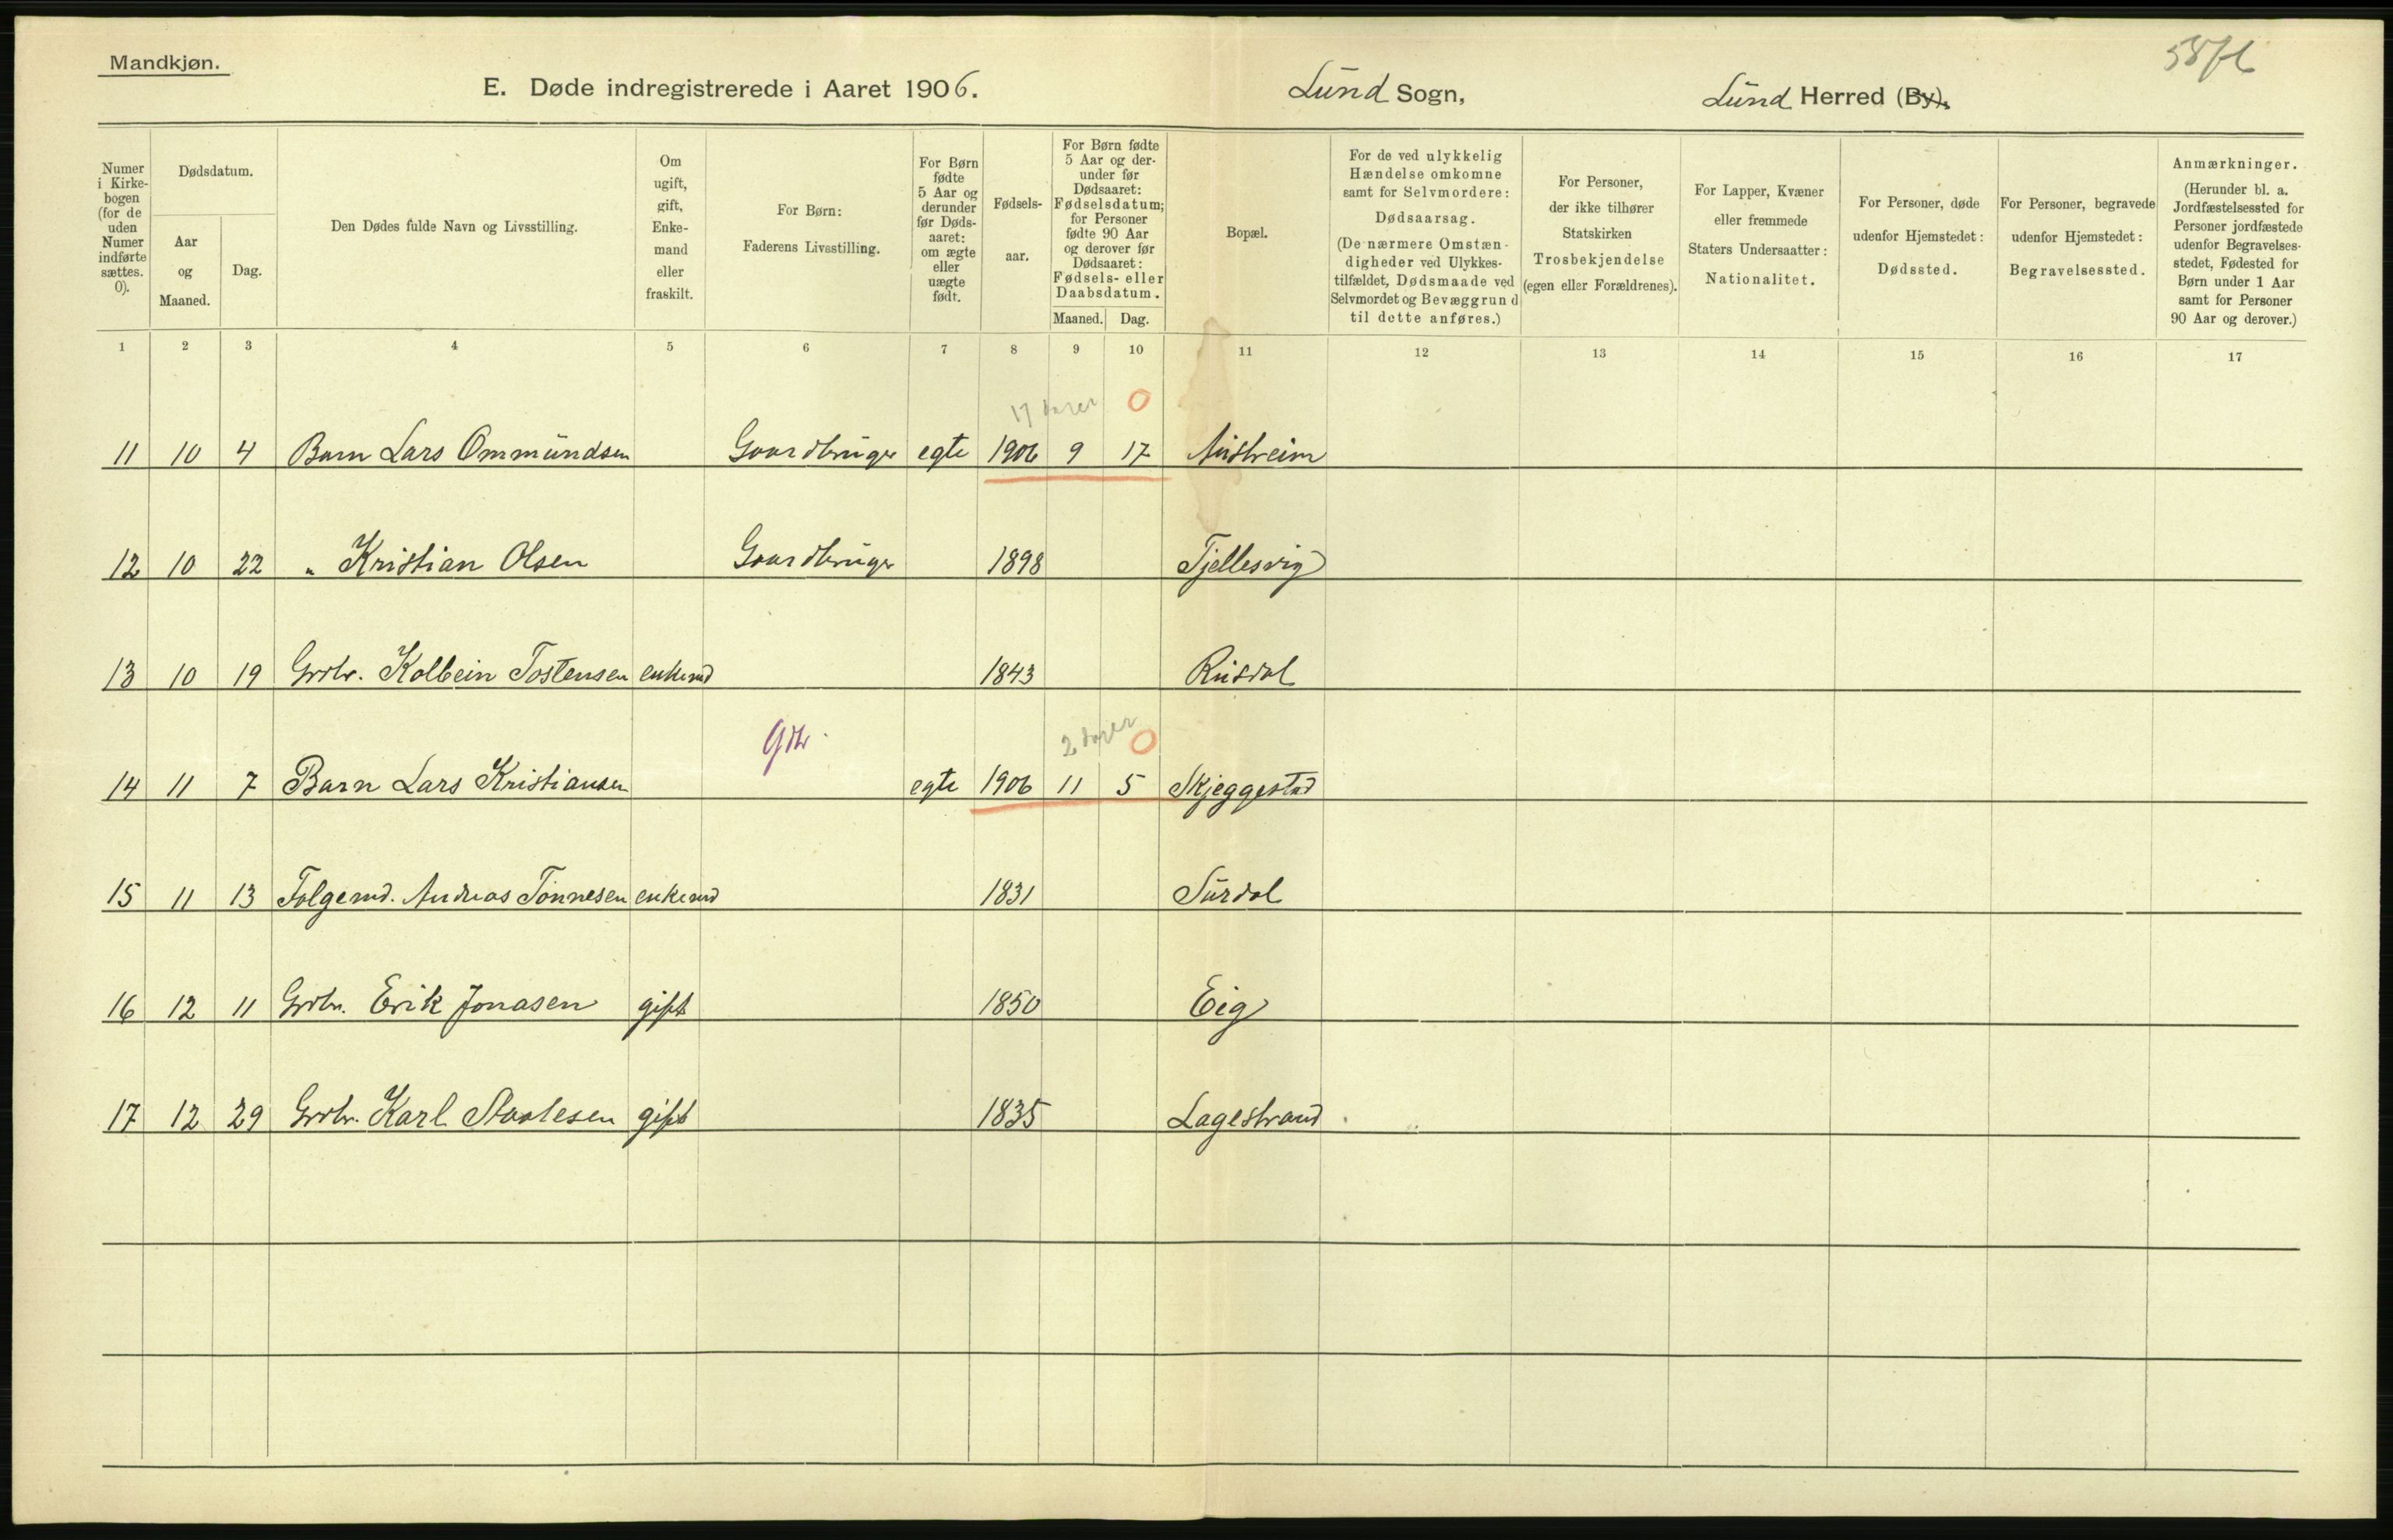 Mandkjøn.
E. Døde indregistrerede i Aaret 1906.
Lund Sogn,
Lund Herred (By).
Numer i Kirkebogen (for de uden Numer indførte sættes. 0).
Dødsdatum.
Aar og Maaned.
Dag.
Den Dødes fulde Navn og Livsstilling.
Om ugift, gift, Enkemand eller fraskilt.
For Børn: Faderens Livsstilling.
For Børn fødte 5 Aar og derunder før Dødsaaret: om ægte eller uægte født.
Fødselsaar.
For Børn fødte 5 Aar og derunder før Dødsaaret: Fødselsdatum; for Personer fødte 90 Aar og derover før Dødsaaret: Fødsels- eller Daabsdatum.
Maaned. Dag.
Bopæl.
For de ved ulykkelig Hændelse omkomne samt for Selvmordere: Dødsaarsag. (De nærmere Omstændigheder ved Ulykkestilfældet, Dødsmaade ved Selvmordet og Bevæggrund til dette anføres.)
For Personer, der ikke tilhører Statskirken Trosbekjendelse (egen eller Forældrenes).
For Lapper, Kvæner eller fremmede Staters Undersaatter: Nationalitet.
For Personer, døde udenfor Hjemstedet: Dødssted.
For Personer, begravede udenfor Hjemstedet: Begravelsessted.
Anmærkninger. (Herunder bl. a. Jordfæstelsessted for Personer jordfæstede udenfor Begravelsesstedet, Fødested for Børn under 1 Aar samt for Personer 90 Aar og derover.)
1 2 3 4 5 6 7 8 9 10 11 12 13 14 15 16 17
17 dager 0
11 10 4 Barn Lars Ommundsen Gaardbruger egte 1906 9 17
12 10 22 " Kristian Olsen Gaardbruger 1898 Tjellesvig
13 10 19 Grdbr. Kolbein Tostensen enkemd 1843 Rusdal
Gbr. 2 dager 0
14 11 7 Barn Lars Kristiansen egte 1906 11 5 Skjeggestad
15 11 13 Folgemd. Andreas Tønnesen enkemd 1831 Surdal
16 12 11 Grdbr. Erik Jonasen gift 1850 Eig
17 12 29 Grdbr. Karl Staalesen gift 1835 Lagestrand